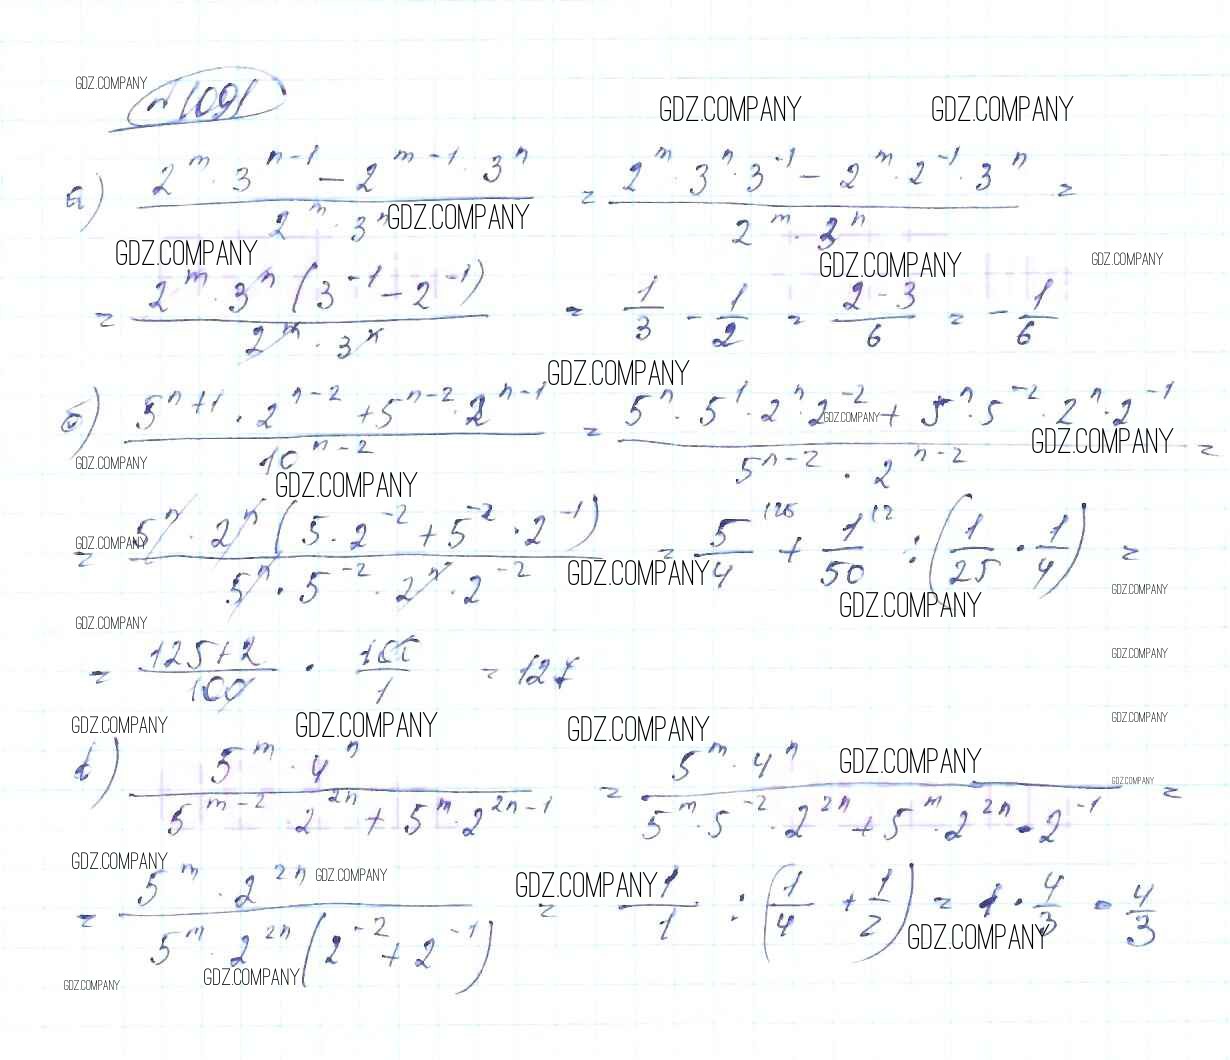 GDZ.COMPANY
№1091
GDZ.COMPANY GDZ.COMPANY
а) (2^m · 3^(n-1) - 2^(m-1) · 3^n) / (2^m · 3^n) = (2^m · 3^n · 3^(-1) - 2^m · 2^(-1) · 3^n) / (2^m · 3^n) =
GDZ.COMPANY
GDZ.COMPANY GDZ.COMPANY GDZ.COMPANY
= (2^m · 3^n (3^(-1) - 2^(-1))) / (2^m · 3^n) = 1/3 - 1/2 = (2-3)/6 = -1/6
GDZ.COMPANY
б) (5^(n+1) · 2^(n-2) + 5^(n-2) · 2^(n-1)) / 10^(n-2) = (5^n · 5^1 · 2^n · 2^(-2) + 5^n · 5^(-2) · 2^n · 2^(-1)) / (5^(n-2) · 2^(n-2)) =
GDZ.COMPANY GDZ.COMPANY
GDZ.COMPANY
GDZ.COMPANY
= (5^n · 2^n (5 · 2^(-2) + 5^(-2) · 2^(-1))) / (5^n · 5^(-2) · 2^n · 2^(-2)) = 5/4 + 1/50 : (1/25 · 1/4) =
GDZ.COMPANY
GDZ.COMPANY GDZ.COMPANY
GDZ.COMPANY
GDZ.COMPANY
= (125+2)/100 · 100/1 = 127
GDZ.COMPANY
GDZ.COMPANY GDZ.COMPANY GDZ.COMPANY GDZ.COMPANY
в) (5^m · 4^n) / (5^(m-2) 2^(2n) + 5^m · 2^(2n-1)) = (5^m · 4^n) / (5^m · 5^(-2) · 2^(2n) + 5^m · 2^(2n) · 2^(-1)) =
GDZ.COMPANY GDZ.COMPANY
GDZ.COMPANY GDZ.COMPANY GDZ.COMPANY
= (5^m · 2^(2n)) / (5^m · 2^(2n) (2^(-2) + 2^(-1))) = 1/1 : (1/4 + 1/2) = 1 · 4/3 = 4/3
GDZ.COMPANY
GDZ.COMPANY GDZ.COMPANY